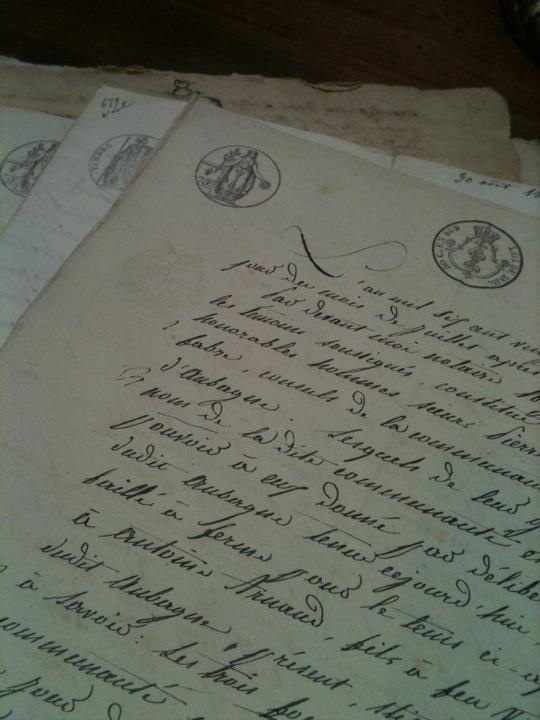 TIMBRE
30 août 18
30 C. EN SUS LOI DE 1816
L'an mil six cent
jour du mois de juillet
par devant moi notaire
les témoins soussignés, constitués
honorables hommes sieurs Pierre
fabre, consuls de la communauté
d'Aubagne. Lesquels de leur
nom de la dite communauté
pouvoir à eux donné par délibé
dudit Aubagne tenu cejourd'hui
baillé à ferme pour le tems ci-ap
à Antoine Arnaud, fils à feu
dudit Aubagne, présent, sti
à savoir: Les trois
communauté
jour